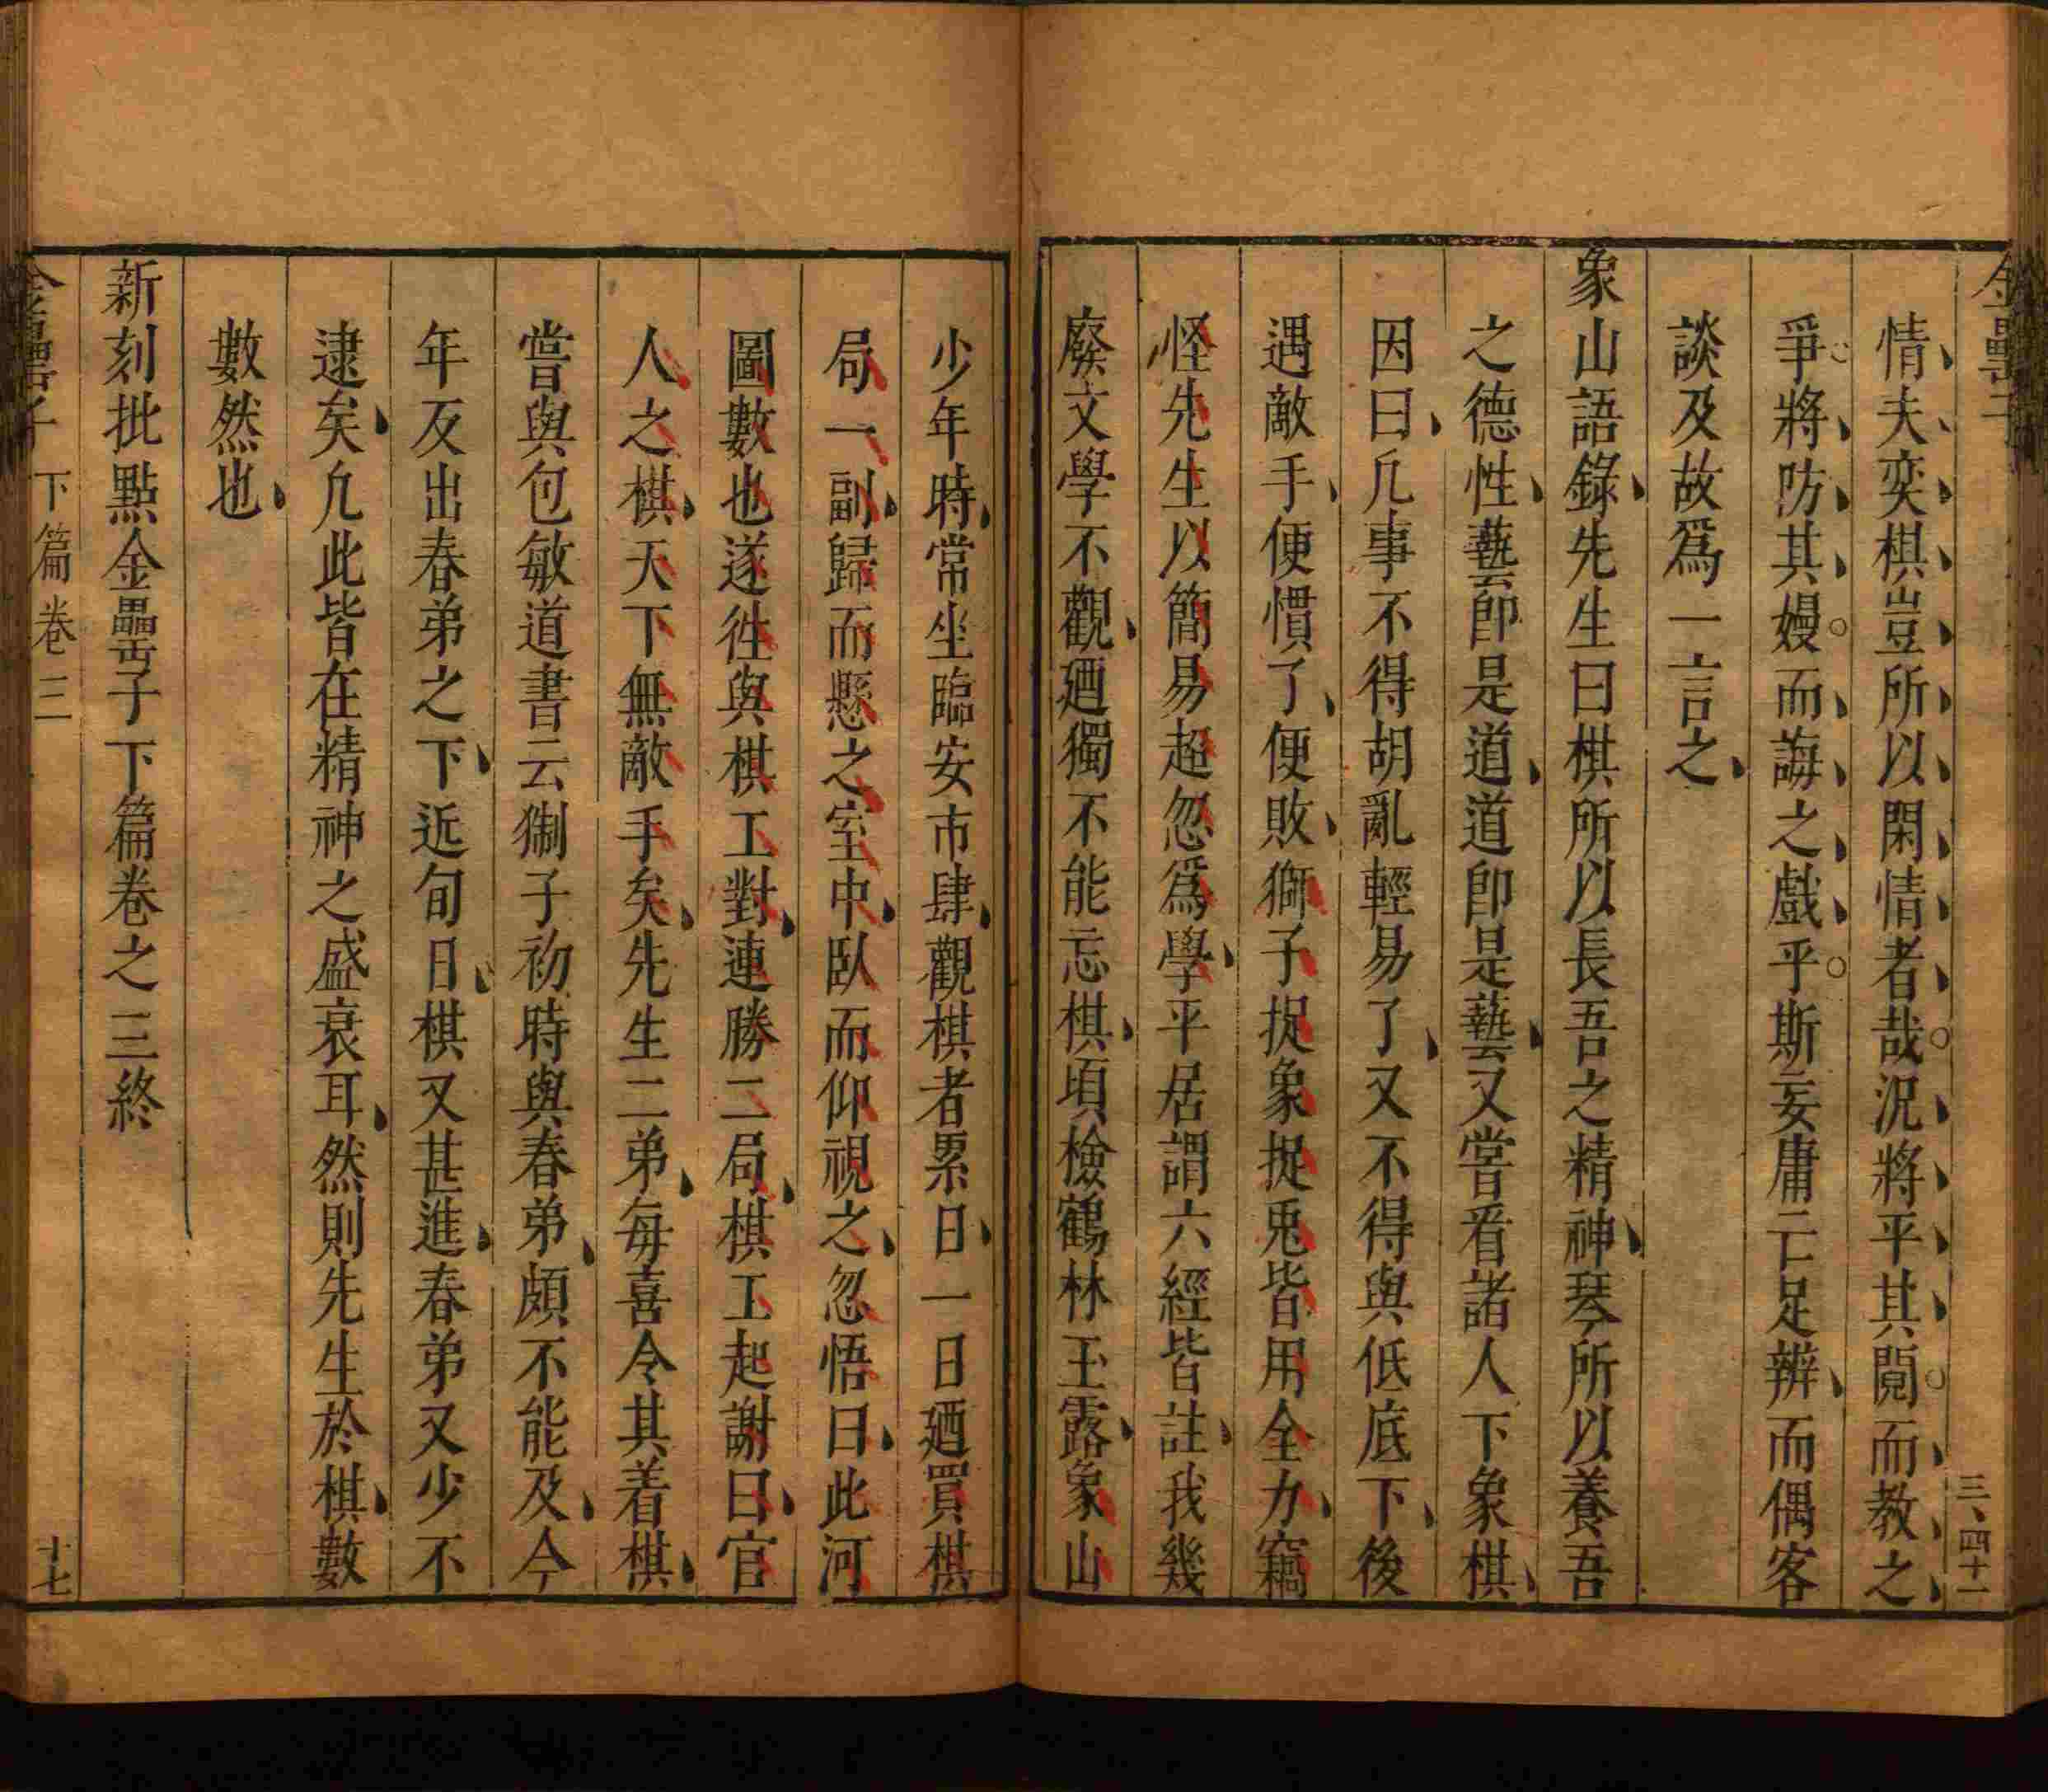 金罍子
三、四十一
情夫奕棋豈所以閑情者哉況將平其閱而教之
爭將防其嫚而誨之戲乎斯妄庸亡足辨而偶客
談及故爲一言之
象山語錄先生曰棋所以長吾之精神琴所以養吾
之德性藝卽是道道卽是藝又嘗看諸人下象棋
因曰凢事不得胡亂輕易了又不得與低底下後
遇敵手便慣了便敗獅子捉象捉兎皆用全力竊
怪先生以簡易超忽爲學平居謂六經皆註我幾
廢文學不觀廼獨不能忘棋頃檢鶴林玉露象山
少年時常坐臨安市肆觀棋者累日一日廼買棋
局一副歸而懸之室中臥而仰視之忽悟曰此河
圖數也遂徃與棋工對連勝二局棋工起謝曰官
人之棋天下無敵手矣先生二弟每喜令其着棋
嘗與包敏道書云猘子初時與春弟頗不能及今
年反出春弟之下近旬日棋又甚進春弟又少不
逮矣凢此皆在精神之盛衰耳然則先生於棋數
數然也
新刻批點金罍子下篇卷之三終
金罍子 下篇卷三
十七